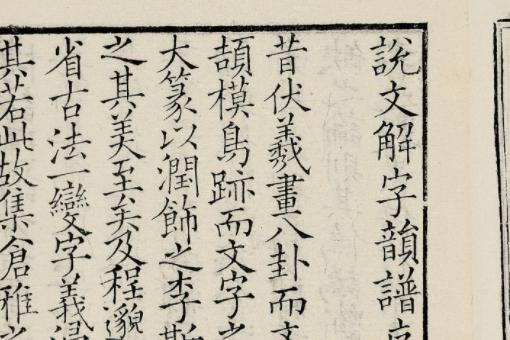 說文解字韻譜
昔伏羲畫八卦而文
頡模鳥跡而文字之
大篆以潤飾之李斯
之其美至矣及程邈
省古法一變字義
其若此故集倉雅之